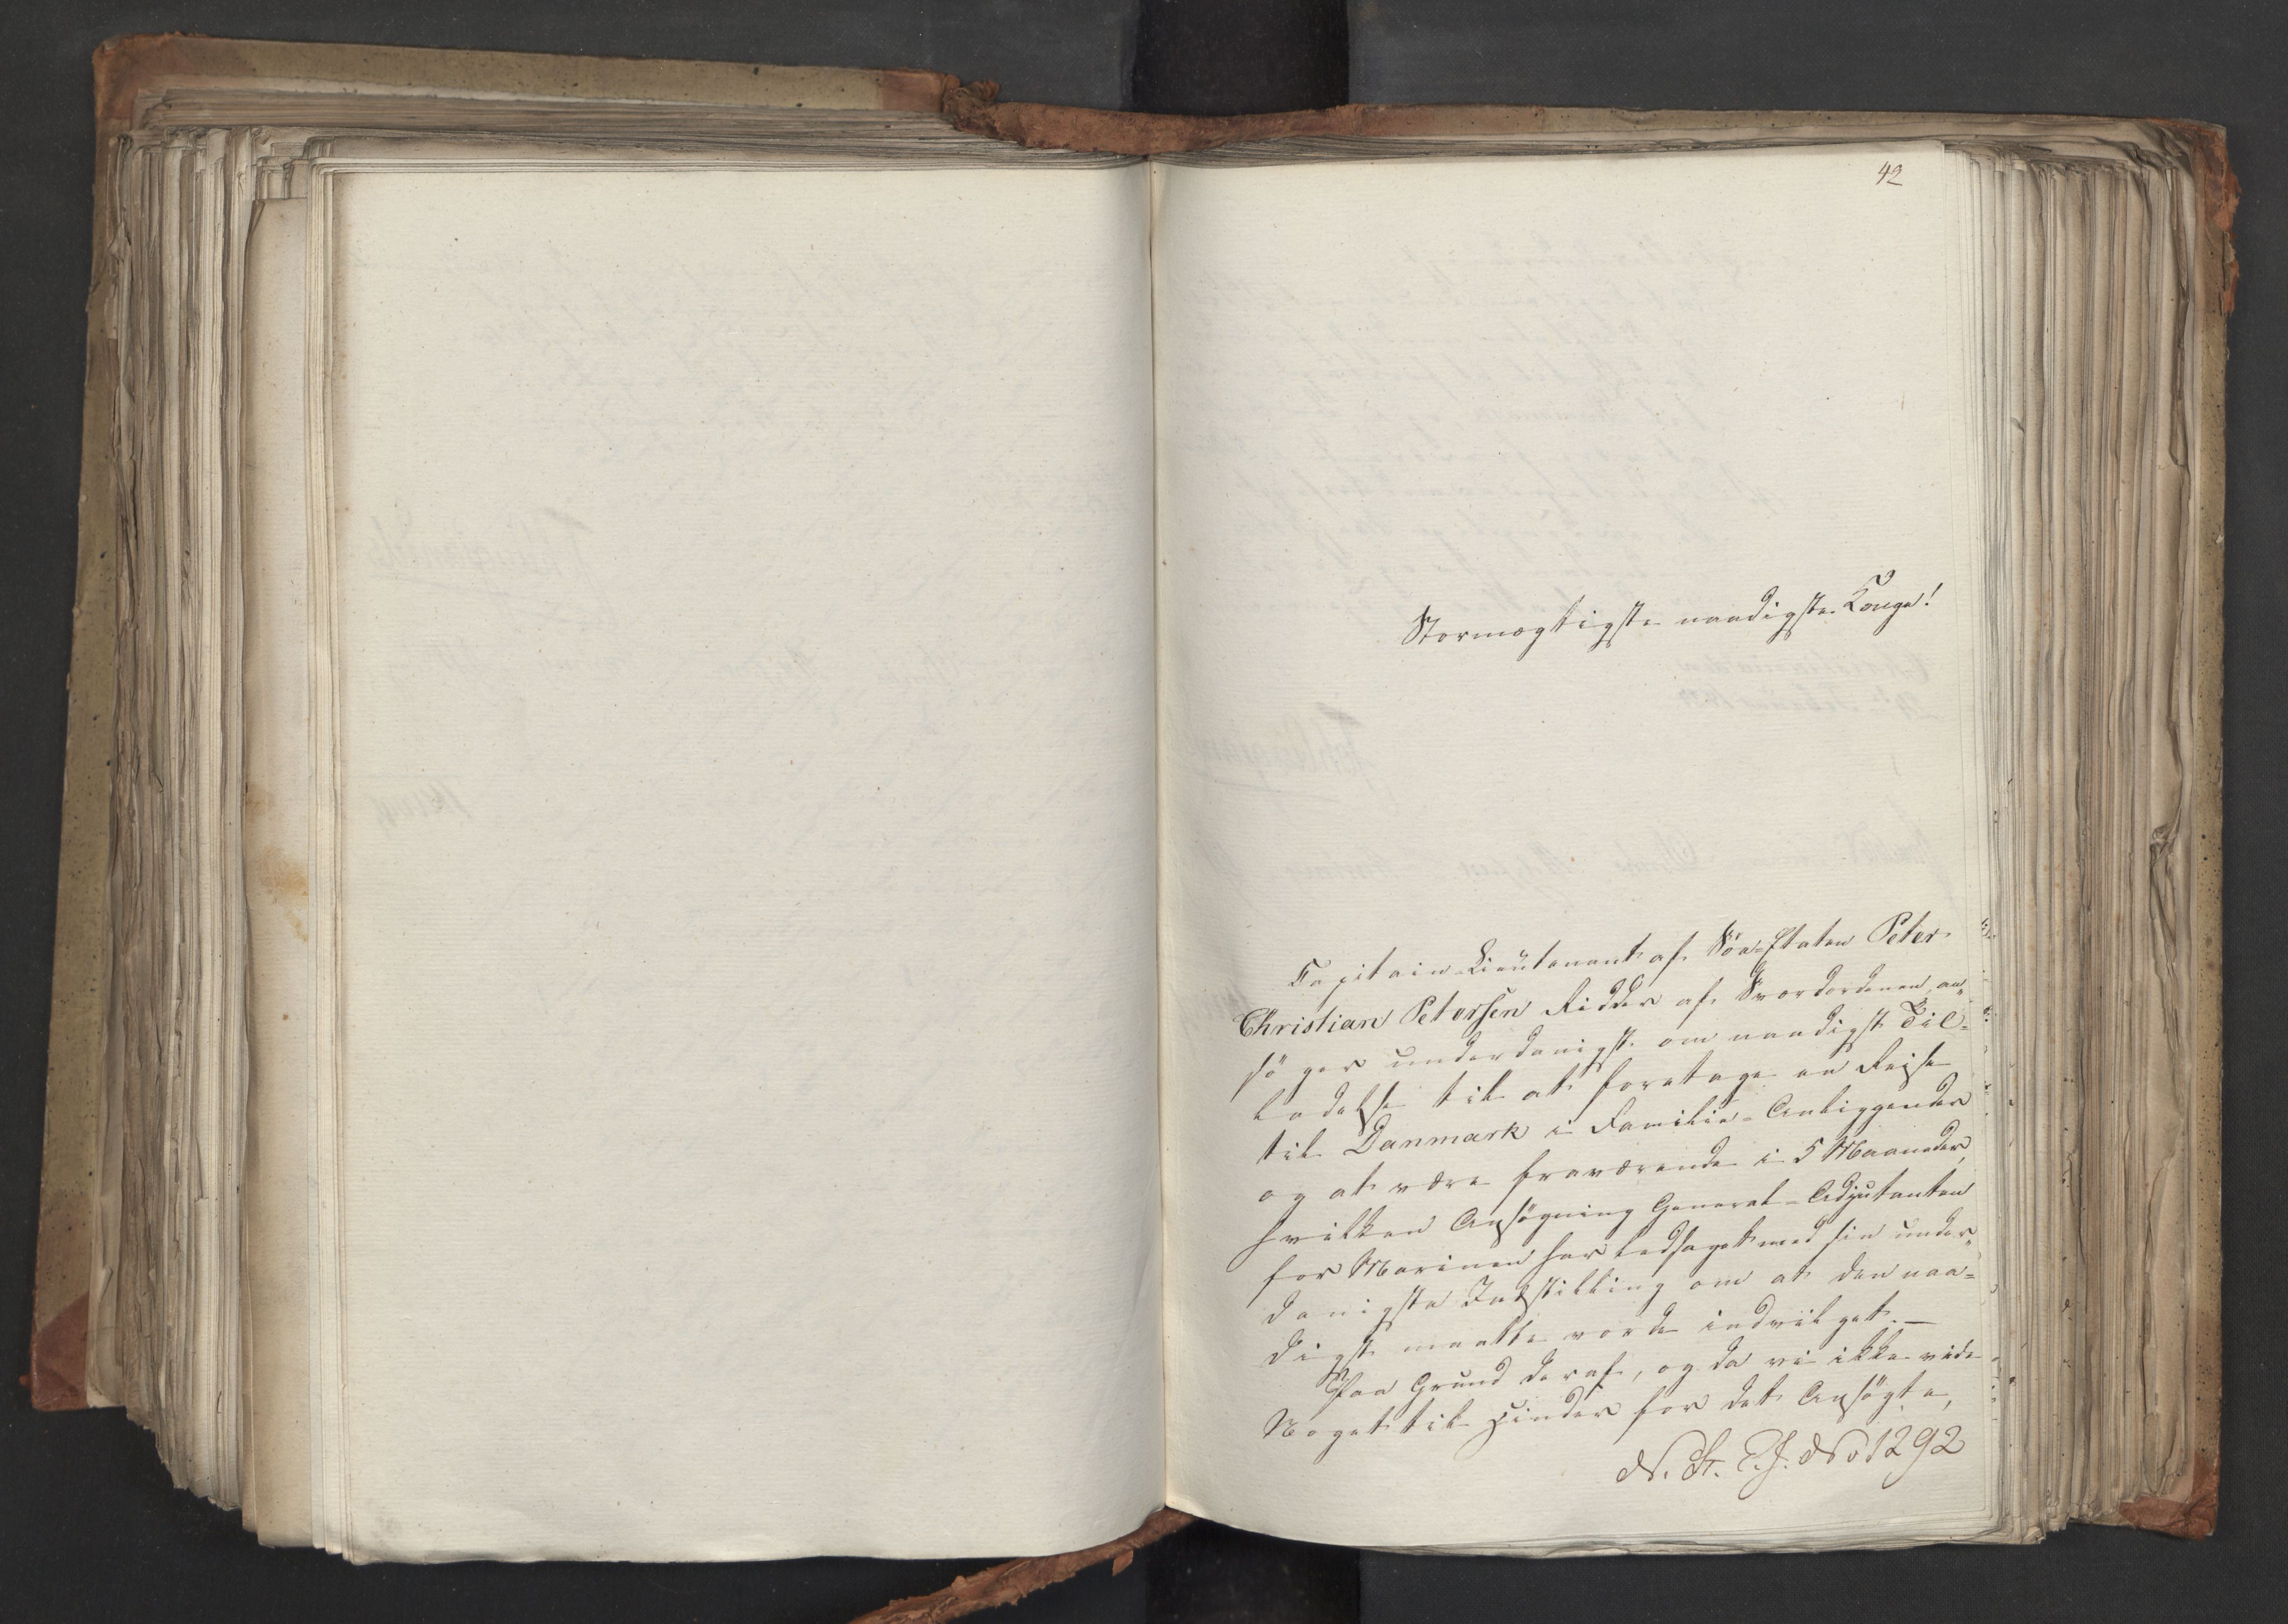 42
Stormægtigste naadigste Konge!
Capitain-Lieutenant af Söe-Etaten Peter
Christian Petersen Ridder af Sværdordenen, an„
söger underdanigst om naadigst Til-
ladelse til at foretage en Reise
til Danmark i Familie-Anliggender
og at være fraværende i 5 Maaneder,
hvilken Ansögning General-Adjutanten
for Marinen har ledsaget med sin under„
danigste Indstilling om at den naa-
digst maatte vorde indvilget. —
Paa Grund deraf, og da vi ikke vide
Noget til Hinder for det Ansögte,
N. St. R. J. No 1292